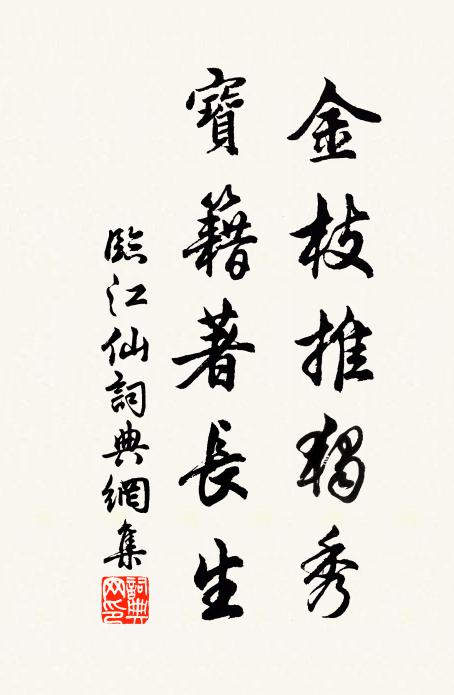 金枝推獨秀
寶籍著長生
臨江仙詞典網集
詞典網印